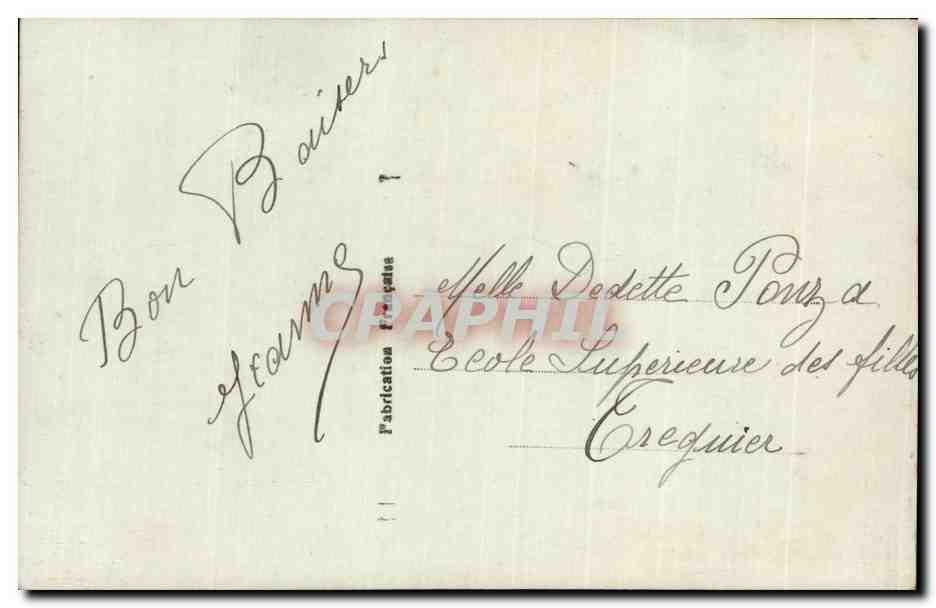 Bon Baisers
Jeanne
Fabrication Française
Melle Dedette Ponza
Ecole Superieure des filles
Treguier
CPAPHIL